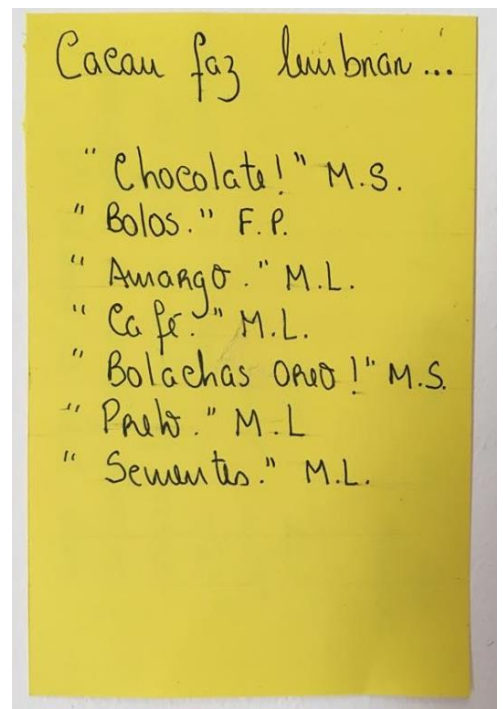 Cacau faz lembrar...
"Chocolate!" M.S.
"Bolos." F.P.
"Amargo." M.L.
"Café." M.L.
"Bolachas Oreo!" M.S.
"Preto." M.L
"Sementes." M.L.